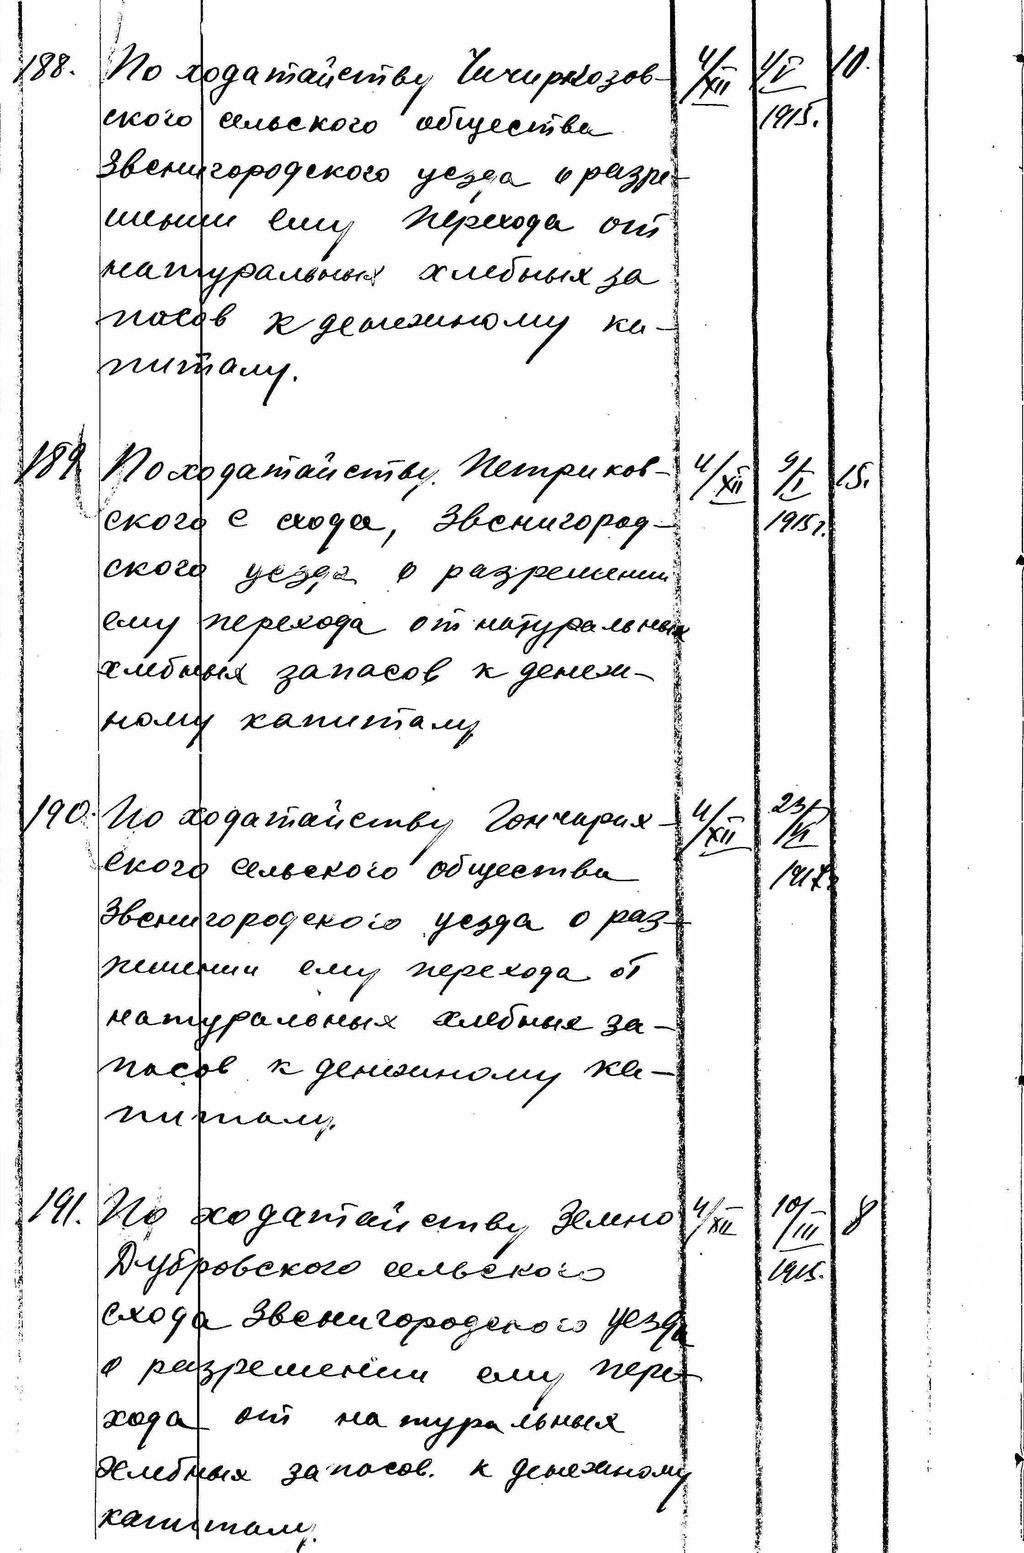 188. По ходатайству Чичиркозов- 4/XII 4/V 10.
ского сельского общества 1915.
Звенигородского уезда о разре-
шении ему перехода от
натуральных хлебных за
пасов к денежному ка-
питалу.
189 По ходатайству Петриков- 4/XII 9/I 15.
ского с схода, Звенигород- 1915г.
ского уезда о разрешении
ему перехода от натуральных
хлебных запасов к денеж-
ному капиталу
190. По ходатайству Гончарих- 4/XII 23/VI
ского сельского общества
Звенигородского уезда о раз-
решении ему перехода от
натуральных хлебных за-
пасов к денежному ка-
питалу.
191. По ходатайству Земно 4/XII 10/III 8
Дубровского сельского 1915.
схода Звенигородского уезда
о разрешении ему пере-
хода от натуральных
хлебных запасов. к денежному
капиталу.